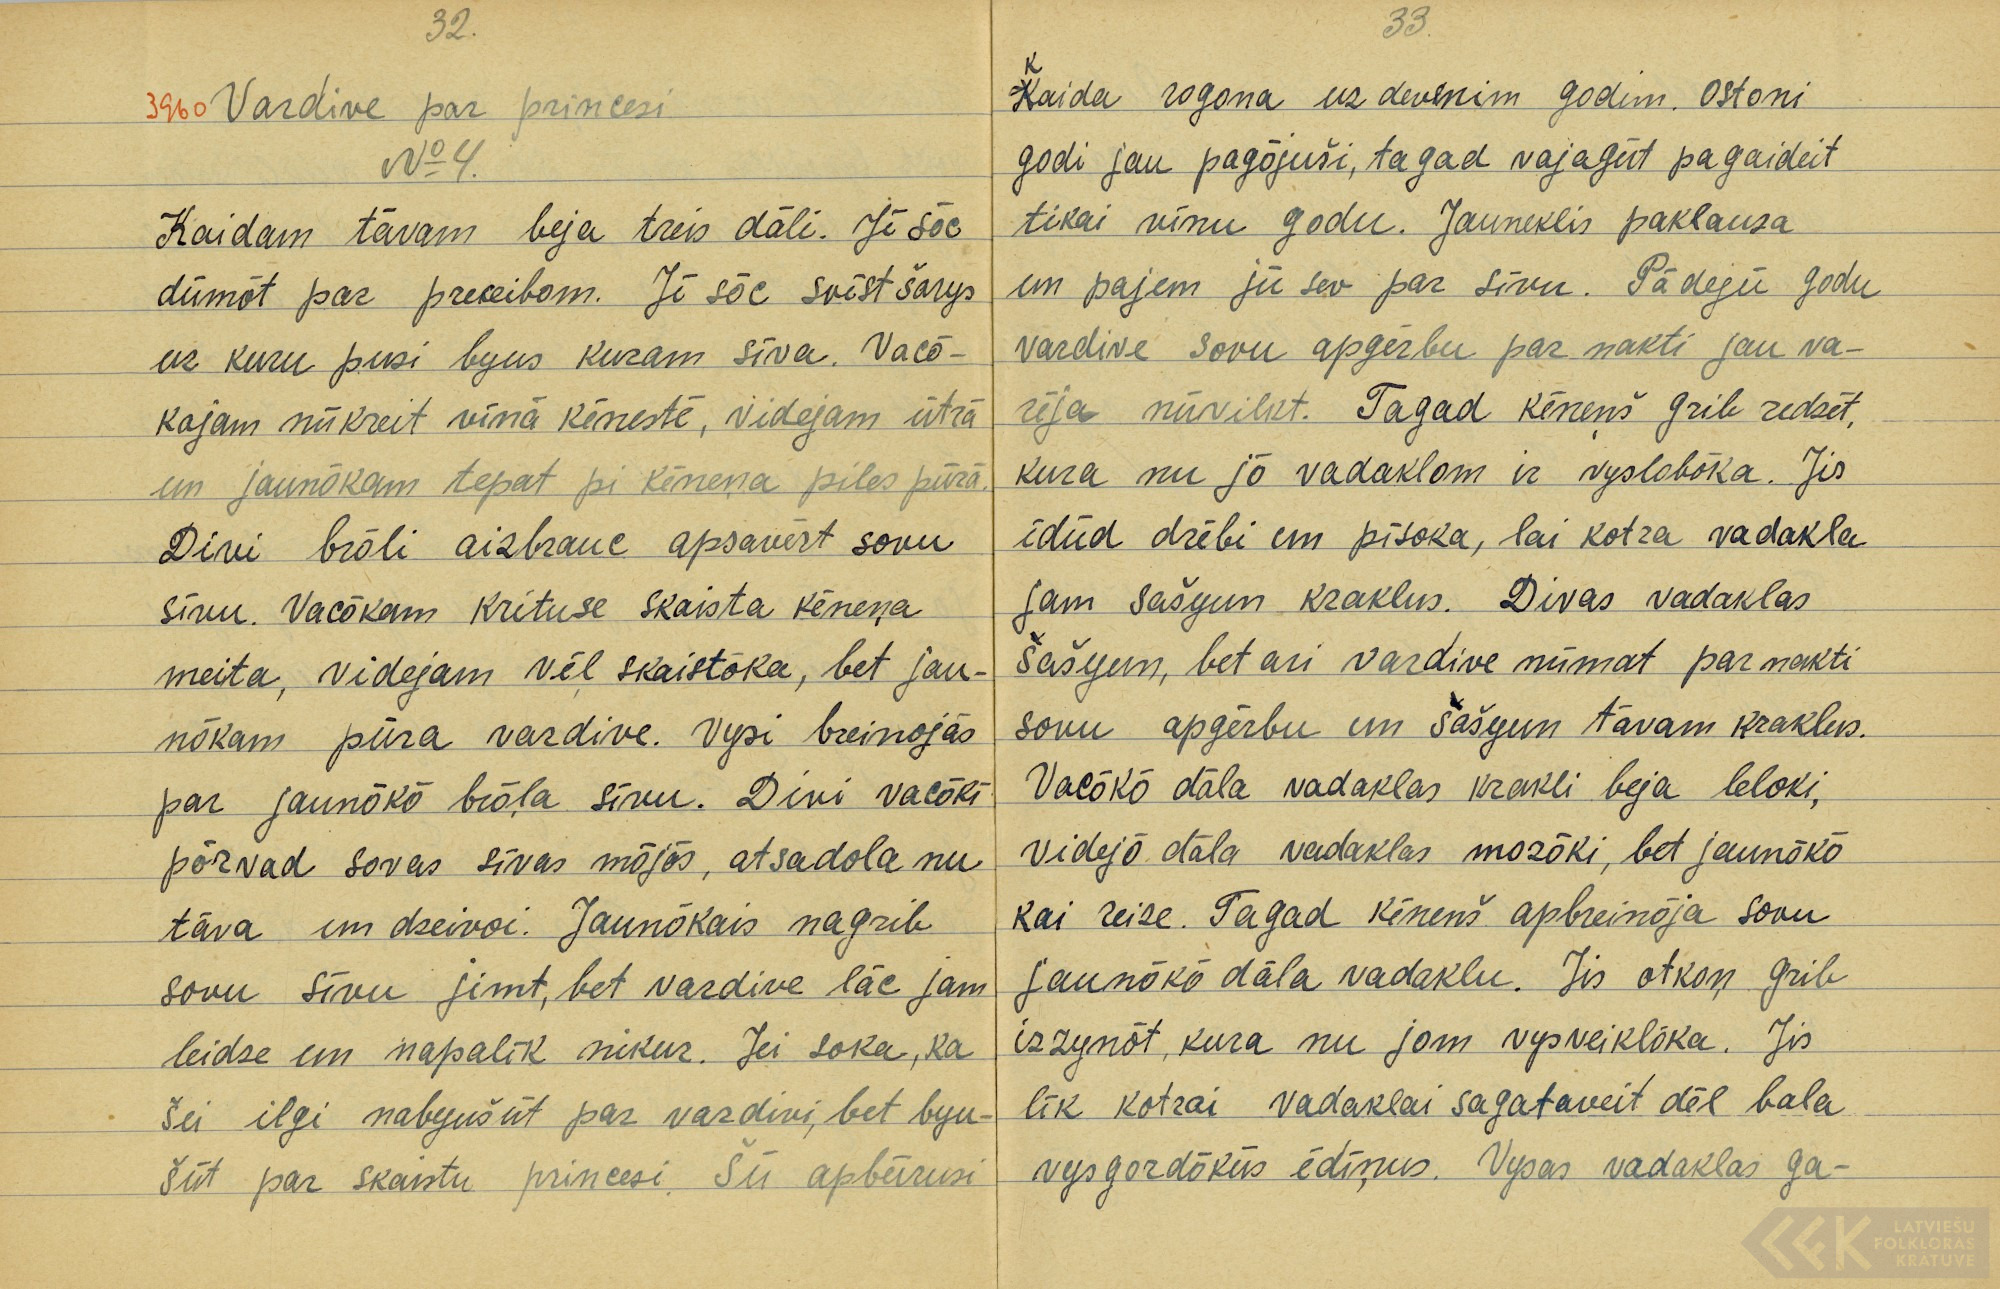 32.
3960 Vardive par princesi
№ 4.
Kaidam tāvam beja treis dāli. Jī sōc
dūmōt par preceibom. Jī sōc svīst šārys
uz kuru pusi byus kuram sīva. Vacō-
kajam nūkreit vīnā kēnestē, videjam ūtrā
un jaunōkam tepat pi kēneņa piles pūrā.
Divi brōli aizbrauc apsavērt sovu
sīvu. Vacōkam krituse skaista kēneņa
meita, videjam vēļ skaistōka, bet jau-
nōkam pūra vardive. Vysi breinojās
par jaunōkō brōļa sīvu. Divi vacōkī
pōrvad sovas sīvas mōjōs, atsadola nu
tāva un dzeivoi. Jaunōkais nagrib
sovu sīvu jimt, bet vardive lāc jam
leidze un napalīk nikur. Jei soka, ka
šei ilgi nabyušūt par vardivi, bet byu-
šūt par skaistu princesi. Šū apbūrusi
33.
Kaida rogona uz deveņim godim. Ostoni
godi jau pagōjuši, tagad vajagūt pagaideit
tikai vīnu godu. Jauneklis paklausa
un pajem jū sev par sīvu. Pādejū godu
vardive sovu apgērbu par nakti jau va-
rēja nūvilkt. Tagad kēneņš grib redzēt,
kura nu jō vadaklom ir vyslobōka. Jis
īdūd drēbi un pīsoka, lai kotra vadakla
jam sašyun kraklus. Divas vadaklas
šašyun, bet ari vardive nūmat par nakti
sovu apgērbu un šašyun tāvam kraklus.
Vacōkō dāla vadaklas krakli beja leloki,
videjō dāla vadaklas mozōki, bet jaunōkō
kai reize. Tagad kēnenš apbreinōja sovu
jaunōkō dāla vadaklu. Jis otkoņ grib
izzynōt, kura nu jom vysveiklōka. Jis
līk kotrai vadaklai sagataveit dēl bala
vysgordōkūs ēdīņus. Vysas vadaklas ga-
LATVIEŠU
FOLKLORAS
KRĀTUVE